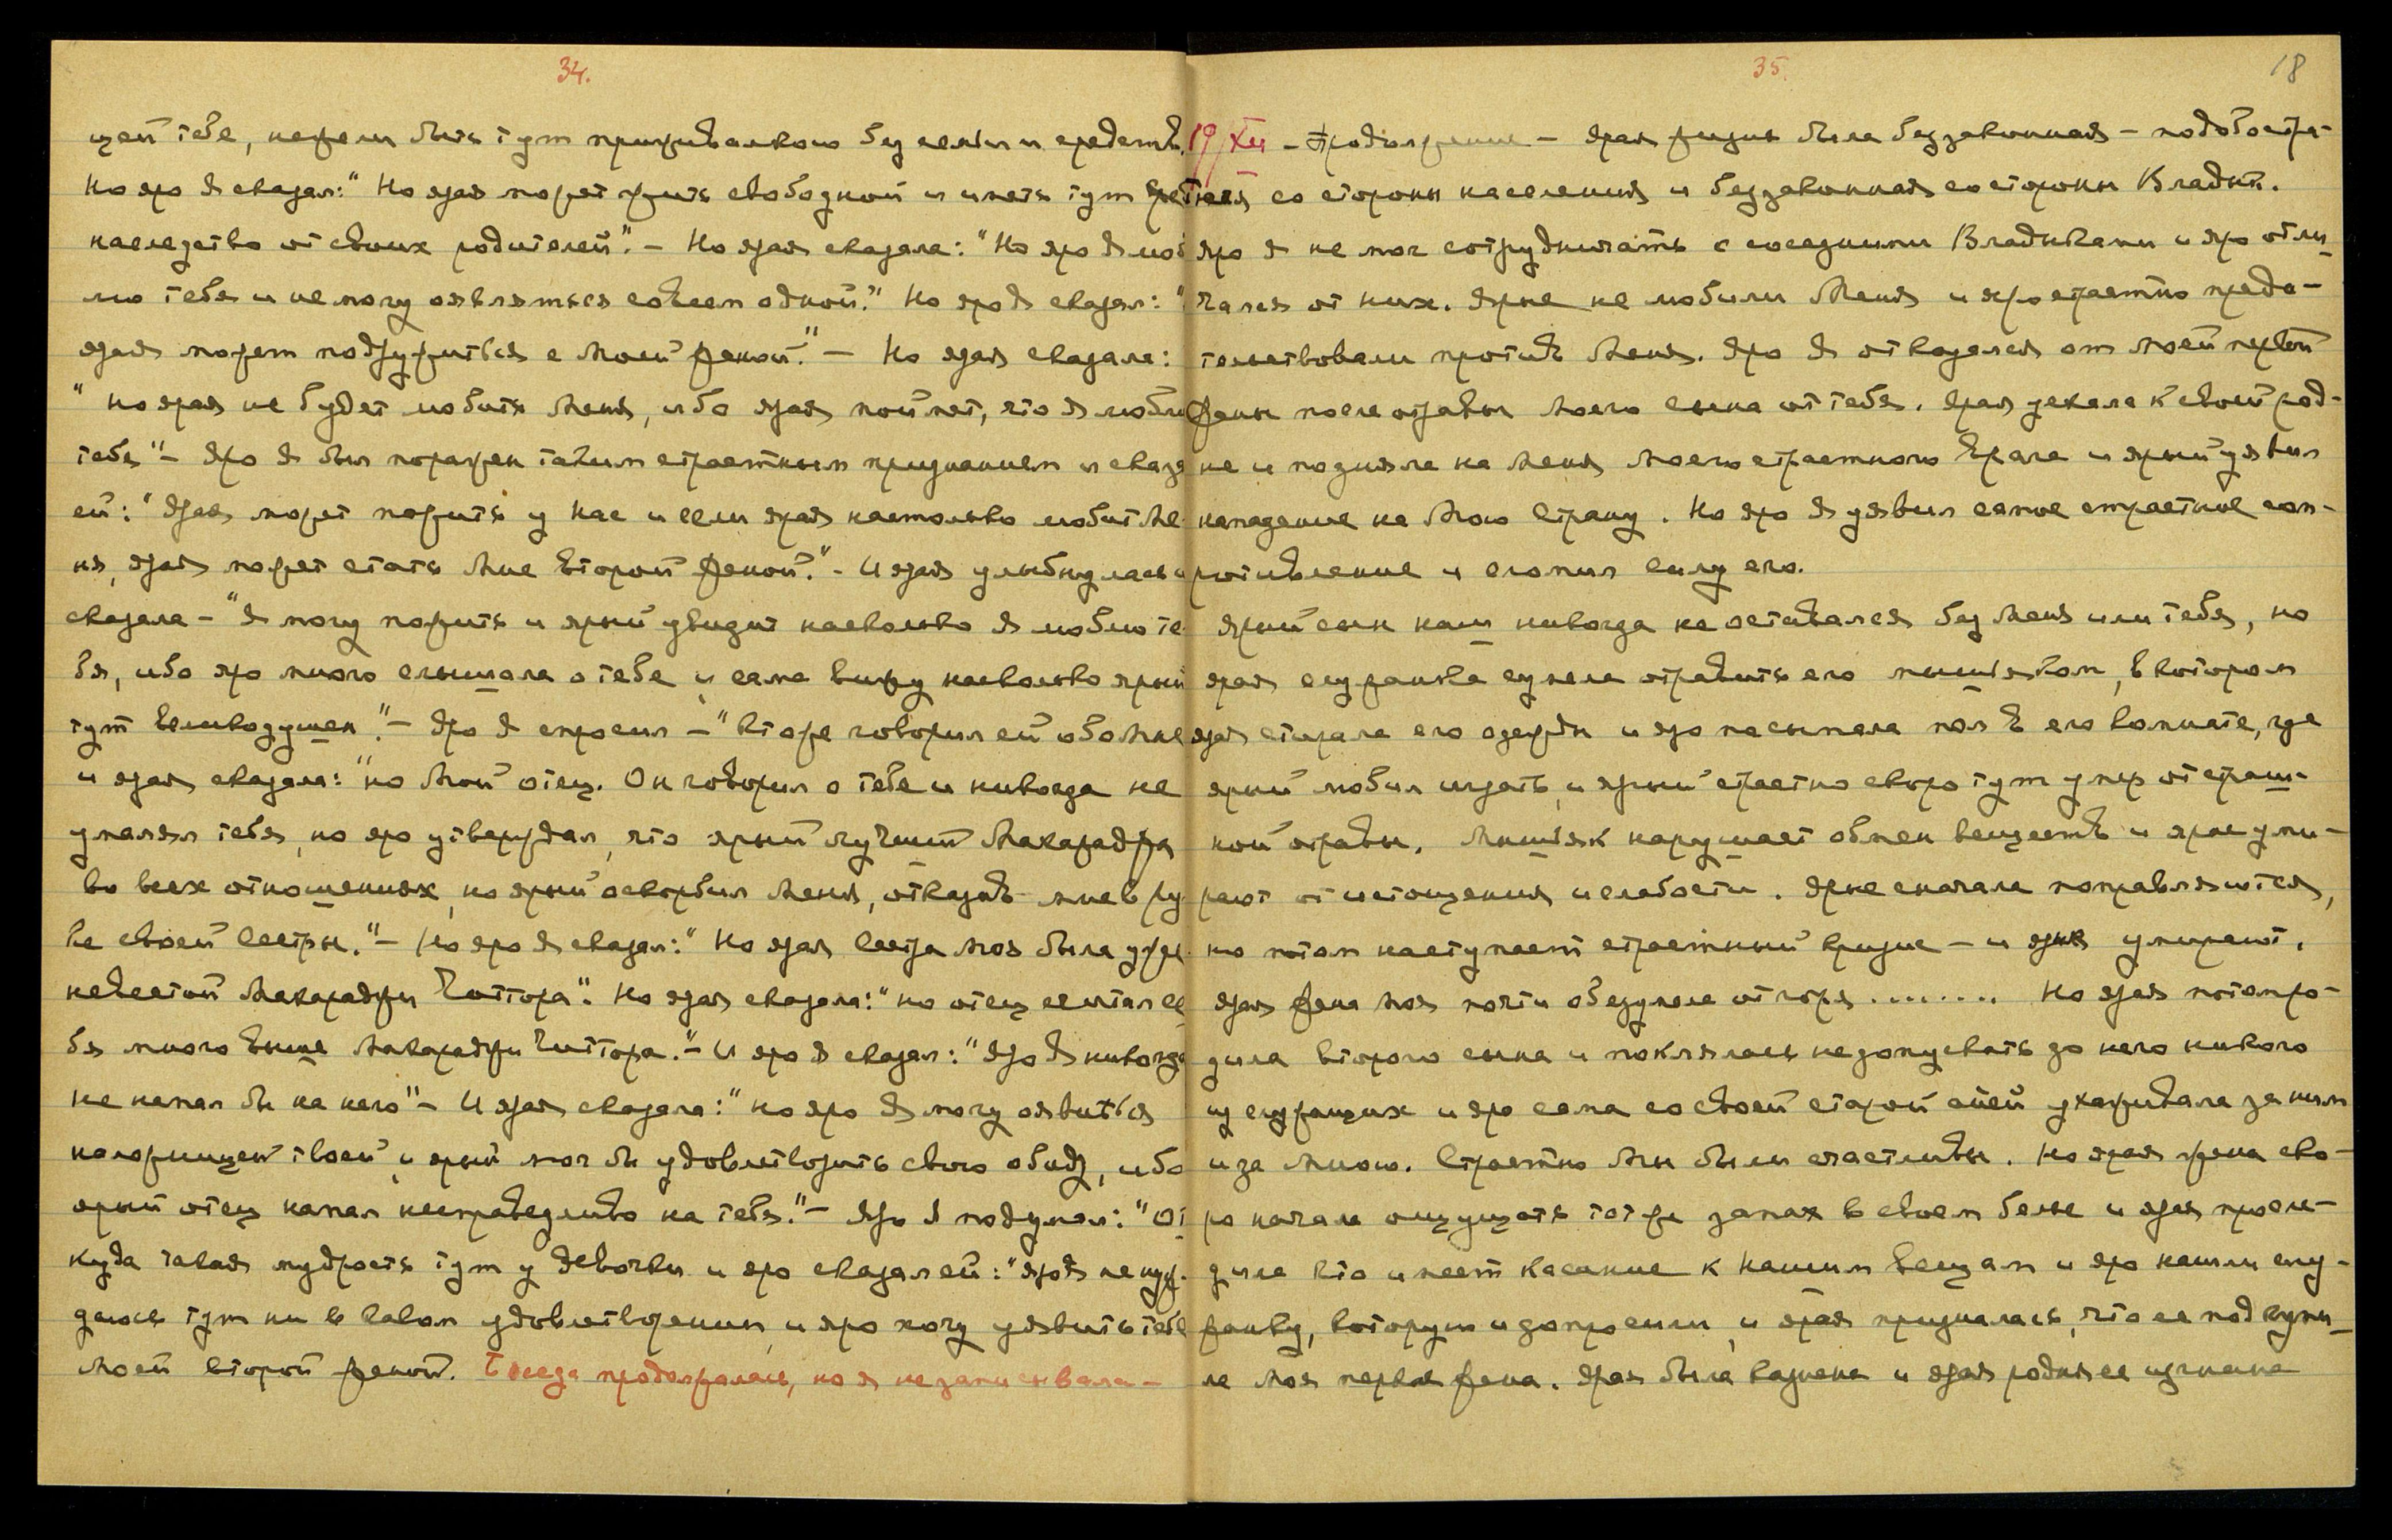 34.
щей тебе, нежели быть тут приживалкою без семьи и средств.
Но яро Я сказал: "Но ярая может жить свободной и иметь тут
наследство от своих родителей". – Но ярая сказала: "Но яро Я люб
лю тебя и не могу оявляться совсем одной." Но яро Я сказал: "
ярая может подружиться с Моей женой." – Но ярая сказала:
"но ярая не будет любить Меня, ибо ярая поймет, что Я люблю
тебя" – Яро Я был поражен таким страстным признанием и сказа
ей: "Ярая может пожить у нас и если ярая настолько любит Ме-
ня, ярая может стать Мне второй женой." – И ярая улыбнулась и
сказала – "Я могу пожить и ярый увидит насколько Я люблю те-
бя, ибо яро много слышала о тебе и сама вижу насколько ярый
тут великодушен." – Яро Я спросил – "Кто же говорил ей обо Мне
и ярая сказала: "но Мой отец. Он говорил о тебе и никогда не
умалял тебя, но яро утверждал, что ярый лучший Махараджа
во всех отношениях, но ярый оскорбил Меня, отказав мне в ру-
ке своей сестры." – Но яро Я сказал: "Но ярая сестра Моя была уже
невестой Махараджи Читтора". Но ярая сказала: "но отец считал се
бя много выше Махараджи Читтора." – И яро Я сказал: "Яро Я никогда
не напал бы на него" – И ярая сказала: "но яро Я могу оявиться
наложницей твоей и ярый мог бы удовлетворить свою обиду, ибо
ярый отец напал несправедливо на тебя." – Яро Я подумал: "От
куда такая мудрость тут у девочки и яро сказал ей: "яро Я не нуж-
даюсь тут ни в каком удовлетворении, и яро хочу уявить тебя
Моей второй женой. Беседа продолжалась, но я не записывала –
35.
18
19/XII – Продолжение – Ярая жизнь была беззаконная – подобостра-
тная со стороны населения и беззаконная со стороны Владык.
Яро Я не мог сотрудничать с соседними Владыками и яро отли
чался от них. Ярые не любили Меня и яро страстно преда-
тельствовали против Меня. Яро Я отказался от Моей первой
жены после отравы Моего сына от тебя. Ярая уехала к своей род-
не и подняла на Меня Моего страстного Врага и ярый уявил
нападение на Мою страну. Но яро Я уявил самое страстное соп-
ротивление и сломил силу его.
Ярый сын наш никогда не оставался без Меня или тебя, но
ярая служанка сумела отравить его мышьяком, в котором
ярая стирала его одежды и яро посыпала пол в его комнате, где
ярый любил играть, и ярый страстно скоро тут умер от страш-
ной отравы. Мышьяк нарушает обмен веществ и ярые уми-
рают от истощения и слабости. Ярые сначала поправляются,
но потом наступает страстный кризис – и ярые умирают.
Ярая жена Моя почти обезумела от горя ........ Но ярая потом ро-
дила второго сына и поклялась не допускать до него никого
из служащих и яро сама со своей старой аией ухаживала за ним
и за Мною. Страстно Мы были счастливы. Но ярая жена ско-
ро начала ощущать тот же запах в своем белье и ярая просле-
дила кто имеет касание к нашим вещам и яро нашли слу-
жанку, которую и допросили, и ярая призналась, что ее подкупи
ла Моя первая жена. Ярая была казнена и ярая родня ее изгнана